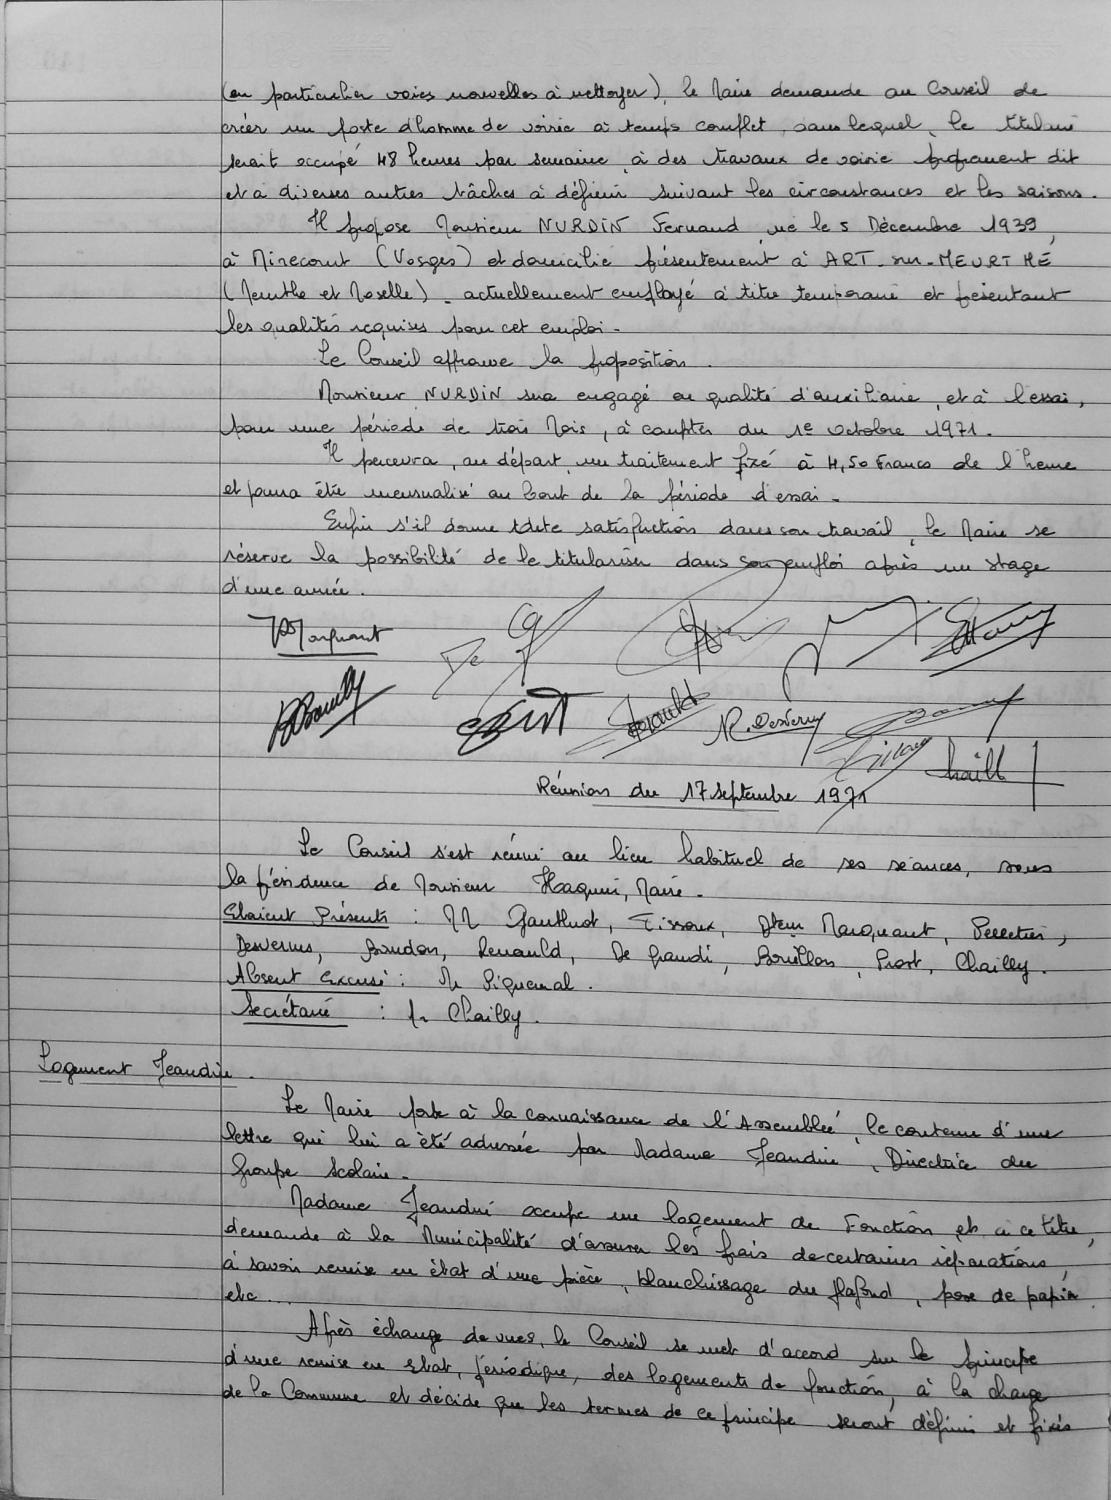 (en particulier voies nouvelles à nettoyer), le Maire demande au Conseil de
créer un poste d'homme de voirie à temps complet, dans lequel, le titulaire
serait occupé 48 heures par semaine, à des travaux de voirie proprement dit
et à diverses autres tâches à définir suivant les circonstances et les saisons.
Il propose Monsieur NURDIN Fernand, né le 5 Décembre 1939,
à Mirecourt (Vosges) et domicilié présentement à ART-sur-MEURTHE
(Meurthe et Moselle) - actuellement employé à titre temporaire et présentant
les qualités requises pour cet emploi -
Le Conseil approuve la proposition.
Monsieur NURDIN sera engagé en qualité d'auxiliaire, et à l'essai,
pour une période de trois Mois, à compter du 1e octobre 1971.
Il percevra, au départ, un traitement fixé à 4,50 Francs de l'heure
et pourra être mensualisé au bout de la période d'essai -
Enfin s'il donne toute satisfaction dans son travail, le Maire se
réserve la possibilité de le titulariser dans son emploi après un stage
d'une année.
Marquant
Renauld R. Desvernes
Chailly
Réunion du 17 septembre 1971
Le Conseil s'est réuni au lieu habituel de ses séances, sous
la présidence de Monsieur Haquin, Maire -
Etaient Présents : MM Gauthrot, Tissoux, Marquant, Pelletier,
Desvernes, Baudon, Renauld, De Grandi, Bouillon, Prort, Chailly.
Absent Excusé : Mr Piquemal.
Secrétaire : Mr Chailly.
Logement Jeandin.
Le Maire porte à la connaissance de l'Assemblée, le contenu d'une
lettre qui lui a été adressée par Madame Jeandin, Directrice du
Groupe Scolaire -
Madame Jeandin occupe un logement de Fonction et à ce titre,
demande à la Municipalité d'assurer les frais de certaines réparations,
à savoir remise en état d'une pièce, blanchissage du plafond, pose de papier
etc...
Après échange de vues, le Conseil se met d'accord sur le principe
d'une remise en état, périodique, des logements de fonction, à la charge
de la Commune et décide que les termes de ce principe seront définis et fixés